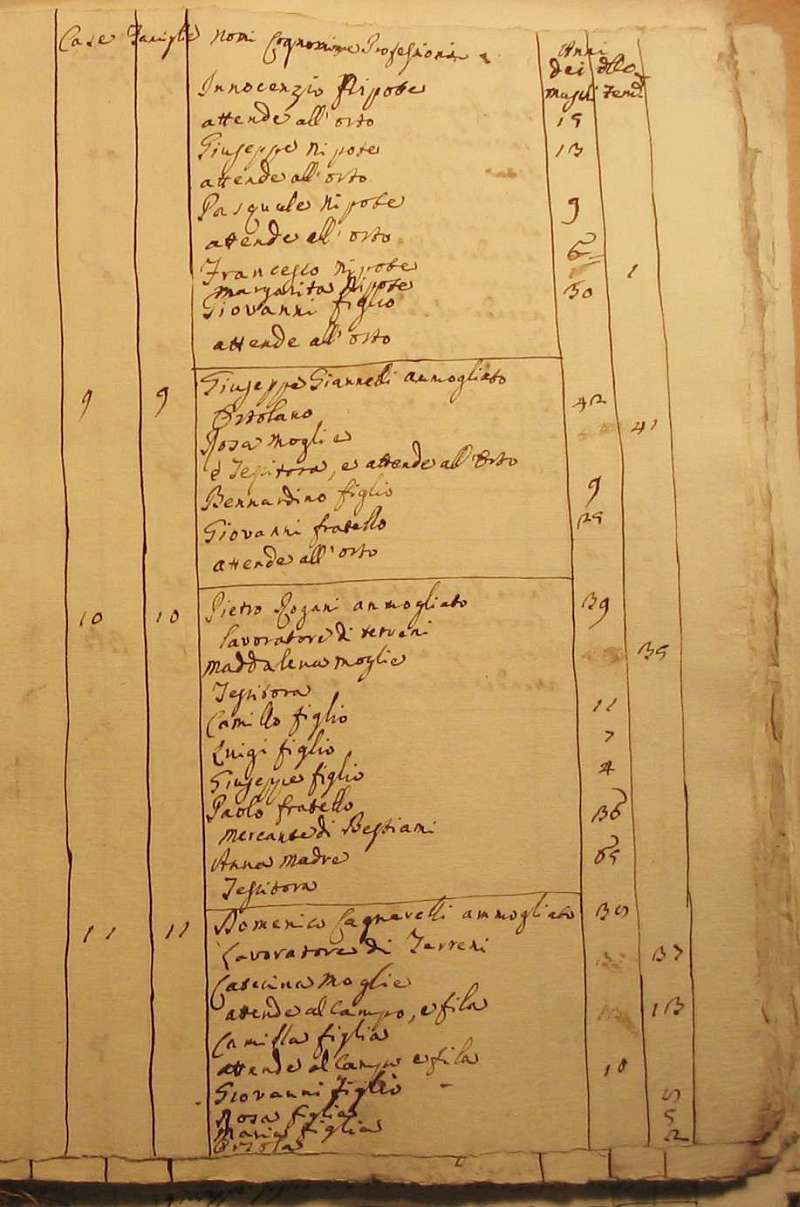 Case Famiglie Nomi Cognomi e Professioni Anni
dei delle
Maschi Femi
Innocenzio Nipote
attende all'orto 15
Giuseppe Nipote 13
attende all'orto
Pasquale Nipote 9
attende all'orto
Francesco Nipote 6
Margarita Nipote 1
Giovanni figlio 30
attende all'orto
9 9 Giuseppe Giannelli ammogliato
Ortolano 42
Rosa Moglie 41
è Tessitora, e attende all'Orto
Bennardino figlio 9
Giovanni fratello 25
attende all'orto
10 10 Pietro Rogani ammogliato 39
lavoratore di terreni
Maddalena moglie 35
Tessitora
Camillo figlio 11
Luigi figlio 7
Giuseppe figlio 4
Paolo fratello 36
Mercante di Bestiami
Anna Madre 65
Tessitora
11 11 Domenico Cagnarelli ammogliato 35
Lavoratore di Terreni
Moglie 37
attende al campo, e fila
Camilla figlia 13
attende al campo e fila
Giovanni figlio 10
Rosa figlia 5
Maria figlia 5
Orsola 2